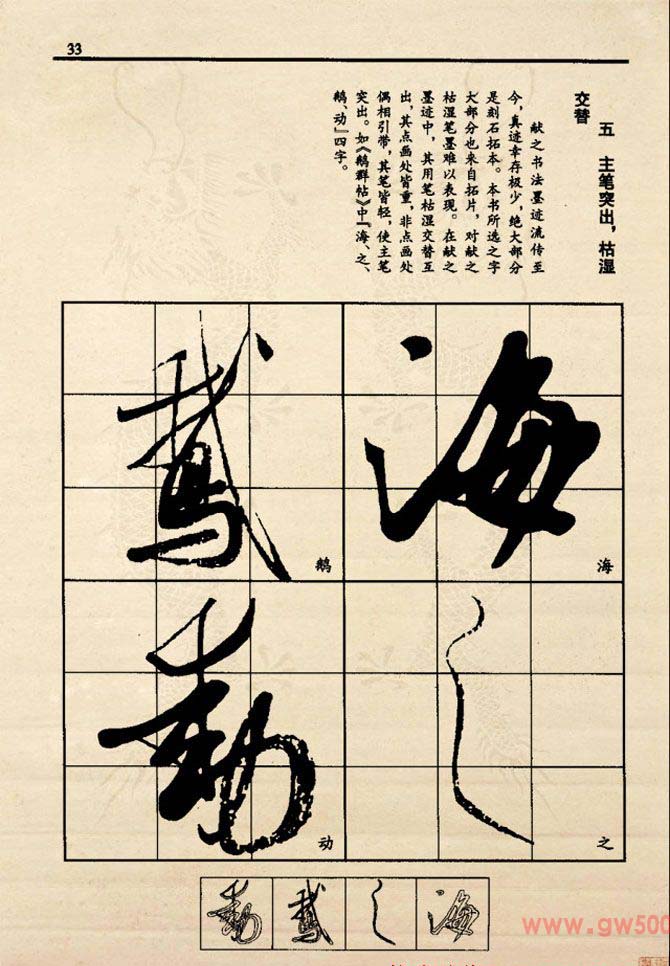 33
五 主笔突出，枯湿
交替
献之书法墨迹流传至
今，真迹幸存极少，绝大部分
是刻石拓本。本书所选之字
大部分也来自拓片，对献之
枯湿笔墨难以表现。在献之
墨迹中，其用笔枯湿交替互
出，其点画处皆重，非点画处
偶相引带，其笔皆轻，使主笔
突出。如《鹅群帖》中『海、之、
鹅、动』四字。
海
海
之
之
鵞
鹅
動
动
海
之
鵞
動
www.gw500